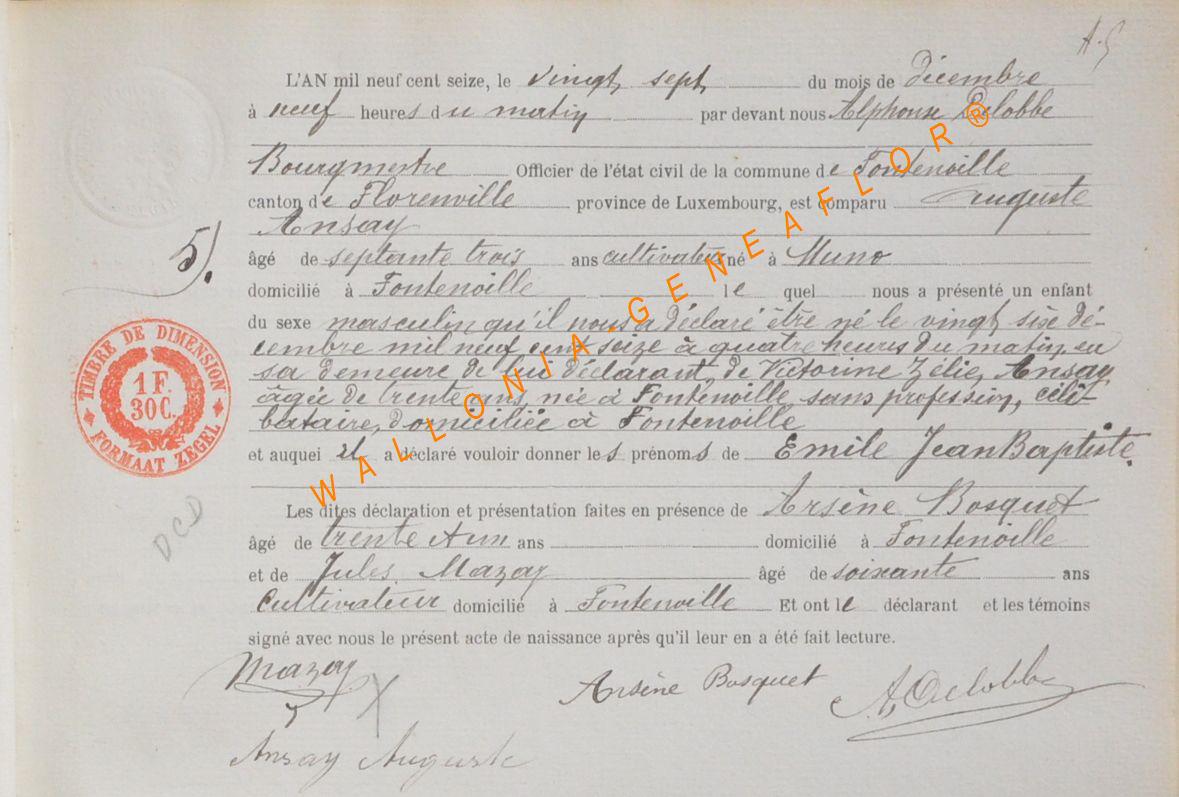 A-5
L'AN mil neuf cent seize, le vingt sept du mois de décembre
à neuf heures du matin par devant nous Alphonse Delobbe
Bourgmestre Officier de l'état civil de la commune de Fontenoille
canton de Florenville province de Luxembourg, est comparu Auguste
Ansay
5).
âgé de septante trois ans cultivateur né à Muno
domicilié à Fontenoille lequel nous a présenté un enfant
du sexe masculin qu'il nous a déclaré être né le vingt six dé-
cembre mil neuf cent seize à quatre heures du matin, en
sa demeure de lui déclarant, de Victorine Zélie, Ansay
âgée de trente ans, née à Fontenoille sans profession, céli-
bataire, domiciliée à Fontenoille
et auquel il a déclaré vouloir donner les prénoms de Emile Jean Baptiste.
Les dites déclaration et présentation faites en présence de Arsène Bosquet
âgé de trente et un ans domicilié à Fontenoille
et de Jules Mazay âgé de soixante ans
cultivateur domicilié à Fontenoille Et ont le déclarant et les témoins
signé avec nous le présent acte de naissance après qu'il leur en a été fait lecture.
Mazay
Arsène Bosquet
A, Delobbe
Ansay Auguste
TIMBRE DE DIMENSION
1 F.
30 C.
FORMAAT ZEGEL
DCD
WALLONIA-GENEAFLOR®